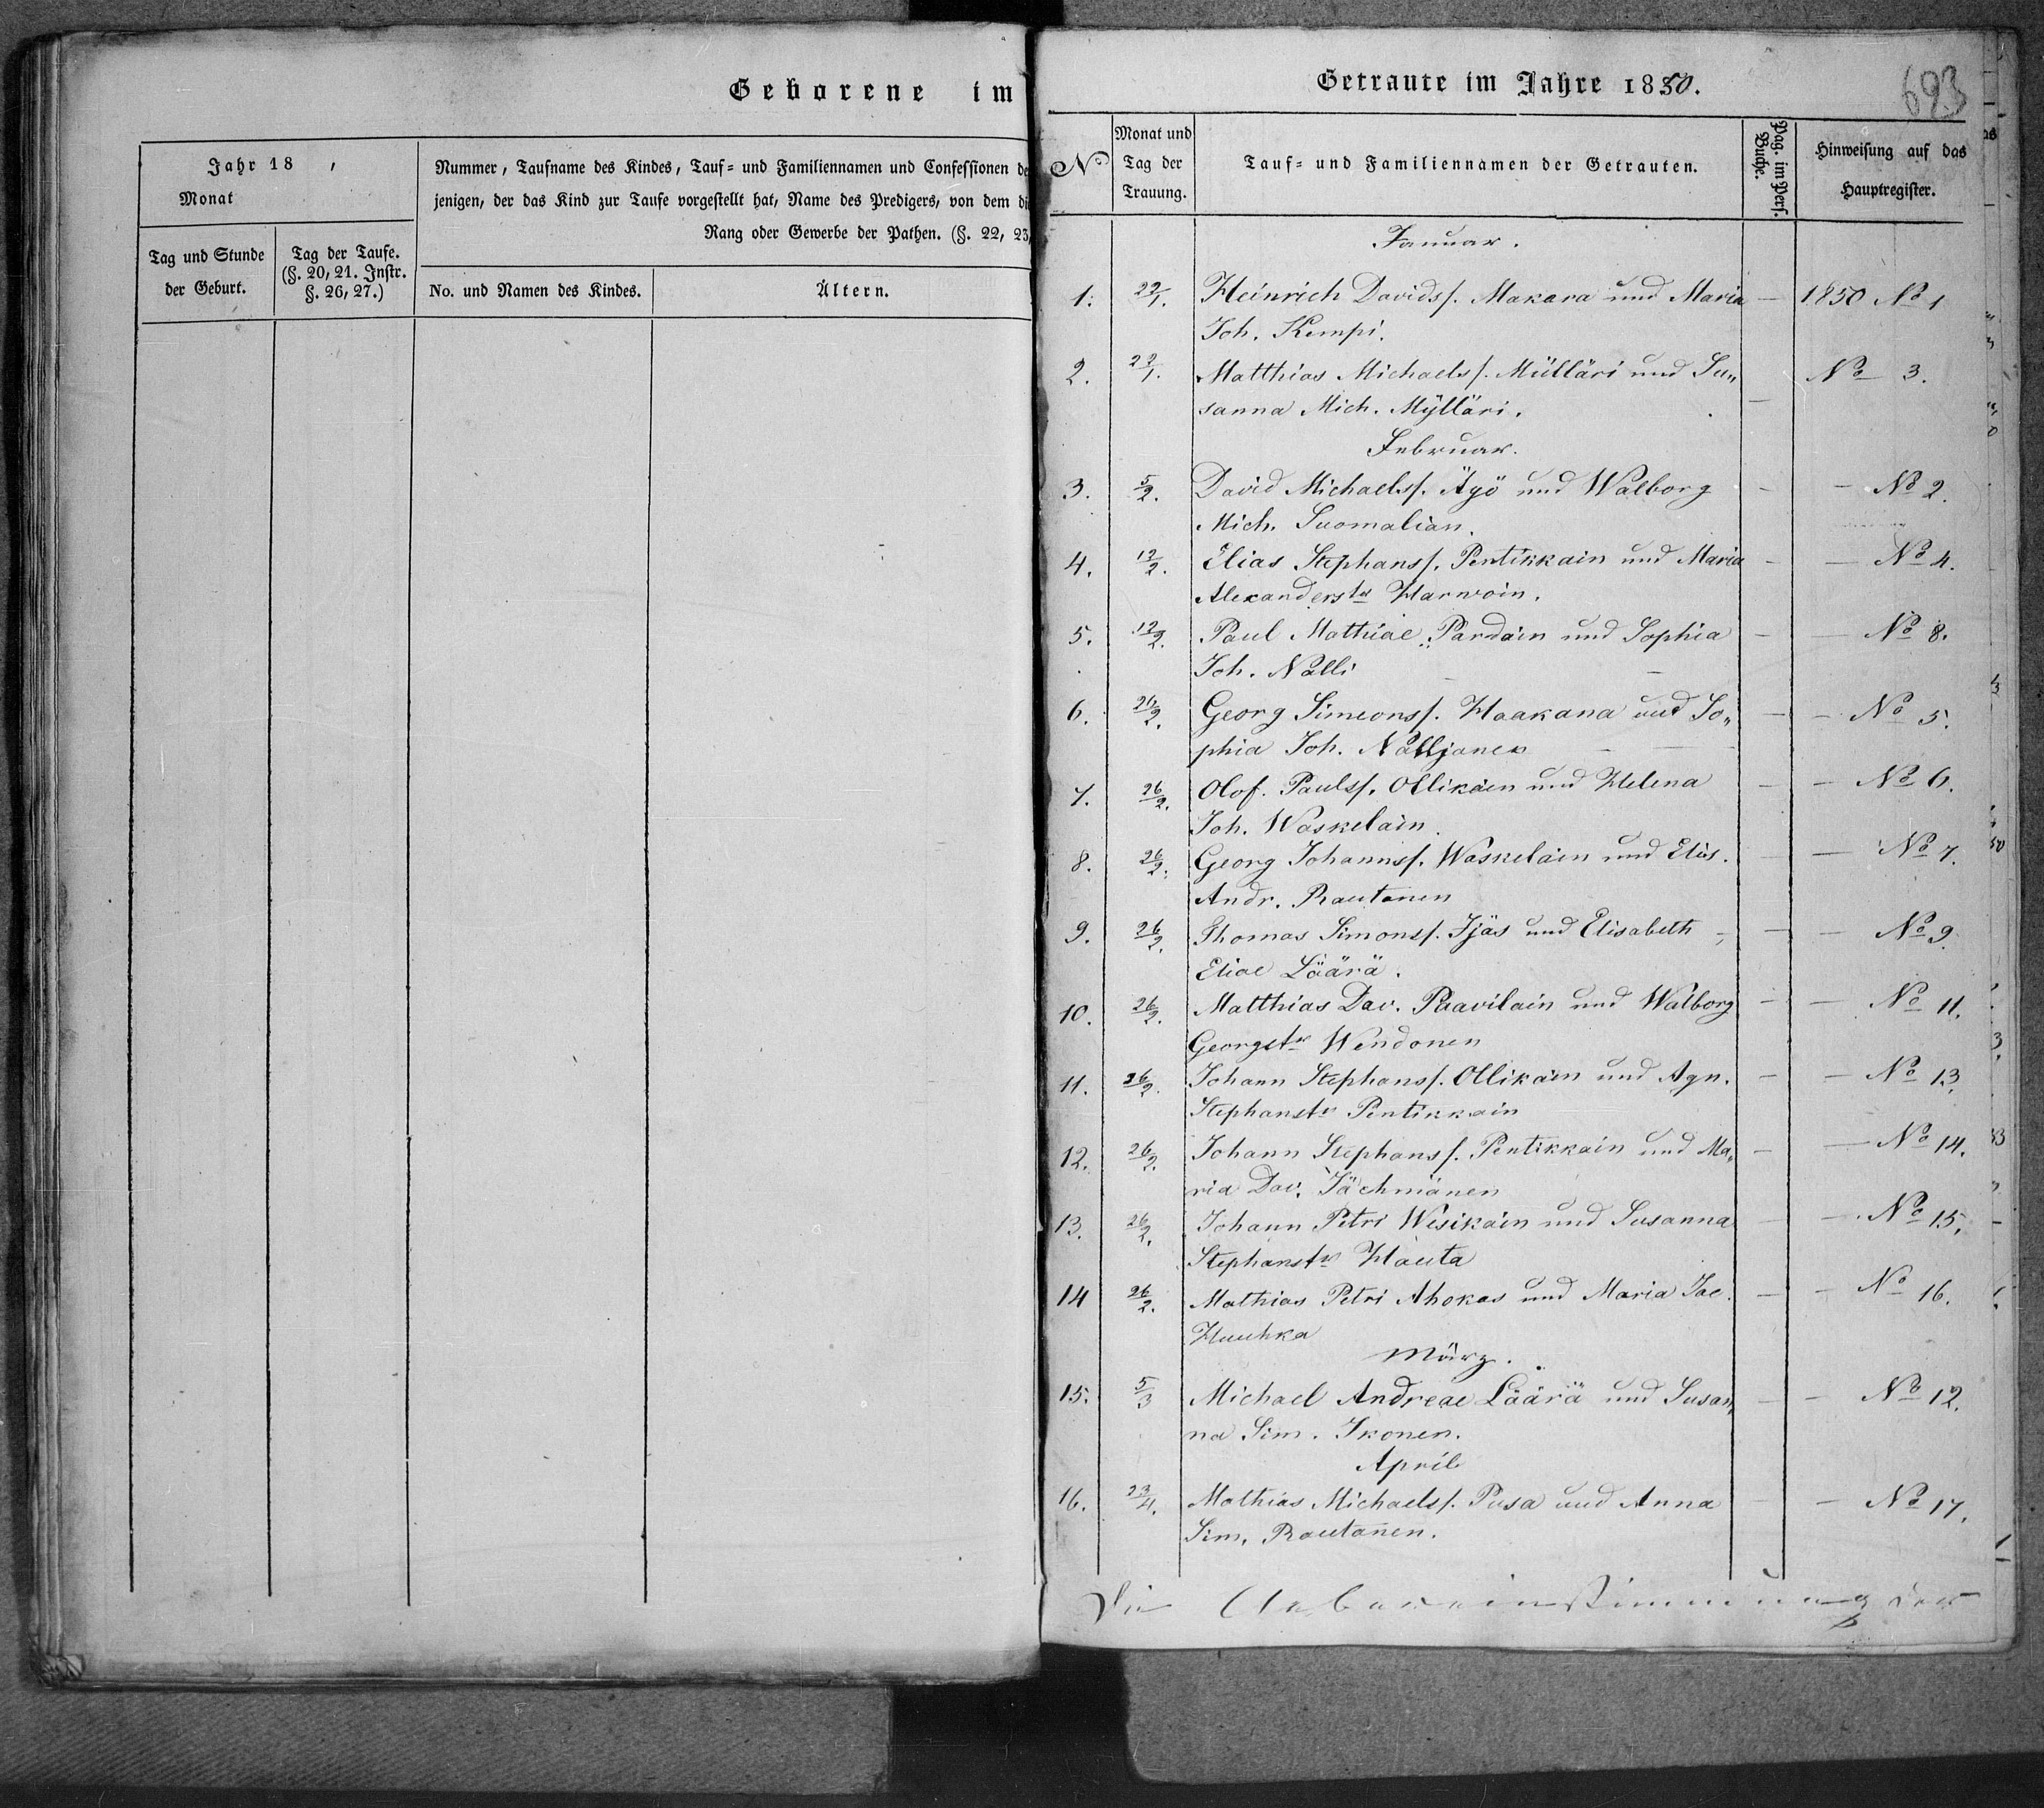 Geborene im
Jahr 18 ,
Monat
Nummer, Taufname des Kindes, Tauf= und Familiennamen und Confessionen de
jenigen, der das Kind zur Taufe vorgestellt hat, Name des Predigers, von dem di
Rang oder Gewerbe der Pathen. (§. 22, 23,
Tag und Stunde
der Geburt.
Tag der Taufe.
(§. 20, 21. Instr.
§. 26, 27.)
No. und Namen des Kindes.
Ältern.
693
Getraute im Jahre 1850.
No
Monat und
Tag der
Trauung.
Tauf= und Familiennamen der Getrauten.
Pag. im Pers.
Buche.
Hinweisung auf das
Hauptregister.
Januar.
1. 22/1. Heinrich Davids s. Makara und Maria — 1850 No 1
Joh. Kempi.
2. 22/1. Matthias Michaels s. Mülläri und Su„ No 3.
sanna Mich. Mÿlläri. —
Februar.
3. 5/2. David Michaels s. Äyö und Walborg — — No 2.
Mich. Suomalian.
4. 12/2. Elias Stephans s. Pentikkain und Maria — — No 4.
Alexanderstr Harwoin.
5. 12/2. Paul Mathiae Pardain und Sophia — — No 8.
Joh. Nalli
6. 26/2. Georg Simeons s. Haakana und So„ — — No 5.
phia Joh. Nalljanen
7. 26/2. Olof. Pauls s. Ollikain und Helena — — No 6.
Joh. Waskelain.
8. 26/2. Georg Johanns s. Waskelain und Elis. — — No 7.
Andr. Rautanen
9. 26/2. Thomas Simons s. Ijäs und Elisabeth — — No 9.
Eliae Läärä.
10. 26/2. Matthias Dav. Paavilain und Walborg — — No 11.
Georgstr Wendonen
11. 26/2. Johann Stephans s. Ollikain und Agn. — — No 13.
Stephanstr Pentikkain
12. 26/2. Johann Stephans s. Pentikkain und Ma„ — — No 14.
ria Dav. Jächmänen
13. 26/2. Johann Petri Wesikain und Susanna — — No 15.
Stephanstr Hauta
14 26/2. Mathias Petri Ahokas und Maria Jac. — — No 16.
Huuhka
März.
15. 5/3 Michael Andreae Läärä und Susan„ — — No 12.
na Sim. Ikonen.
April
16. 23/4. Mathias Michaels s. Pusa und Anna — — No 17.
Sim. Rautanen.
Die Uebereinstimmung der